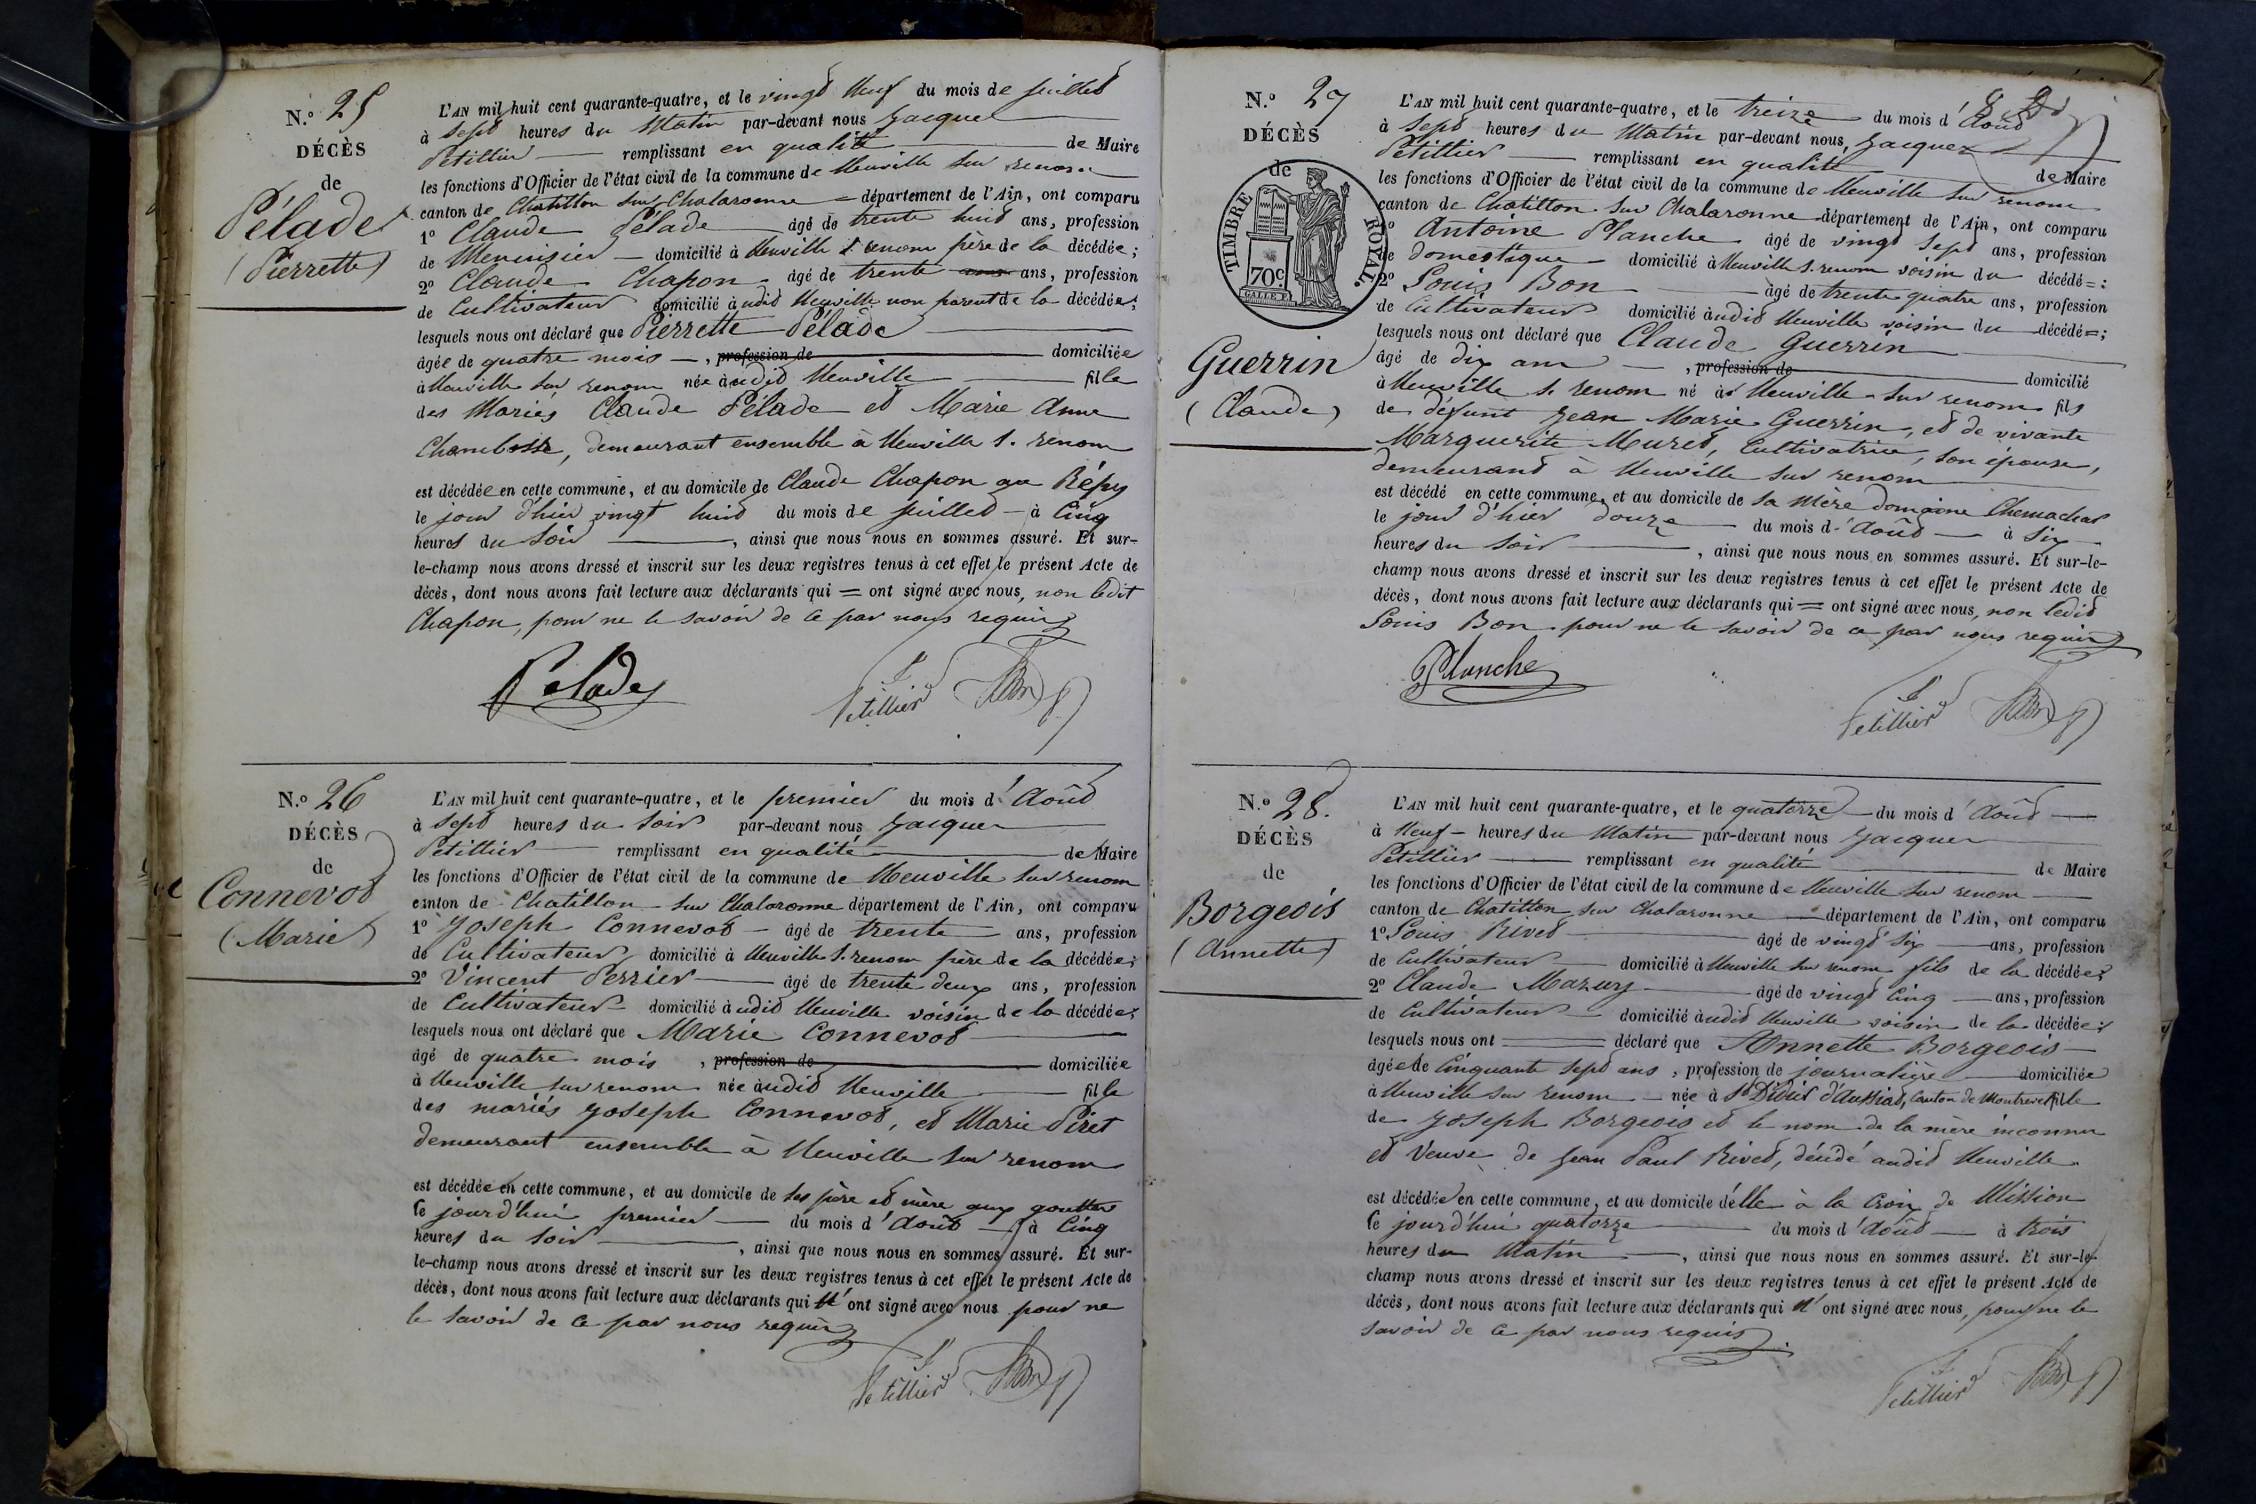 N.º 25
DÉCÈS
de
Pélade
(Pierrette)
L'AN mil huit cent quarante-quatre, et le vingt neuf du mois de juillet
à sept heures du matin par-devant nous Jacques
Petillier remplissant en qualité de Maire
les fonctions d'Officier de l'état civil de la commune de Neuville sur renom
canton de Chatillon sur Chalaronne département de l'Ain, ont comparu
1º Claude Pélade âgé de trente huit ans, profession
de Menuisier domicilié à Neuville s. renom père de la décédée;
2º Claude Chapon âgé de trente ans, profession
de Cultivateur domicilié audit Neuville non parent de la décédée;
lesquels nous ont déclaré que Pierrette Pélade
âgée de quatre mois, profession de domiciliée
à Neuville sur renom née audit Neuville fille
des Mariés Claude Pélade et Marie Anne
Chambosse, demeurant ensemble à Neuville s. renom
est décédée en cette commune, et au domicile de Claude Chapon au Répy
le jour d'hier vingt huit du mois de juillet à Cinq
heures du soir, ainsi que nous nous en sommes assuré. Et sur-
le-champ nous avons dressé et inscrit sur les deux registres tenus à cet effet le présent Acte de
décès, dont nous avons fait lecture aux déclarants qui = ont signé avec nous, non ledit
Chapon, pour ne le savoir de ce par nous requis
Pelade
J Petillier
N.º 26
DÉCÈS
de
Connevot
(Marie)
L'AN mil huit cent quarante-quatre, et le premier du mois d'Août
à sept heures du soir par-devant nous Jacques
Petillier remplissant en qualité de Maire
les fonctions d'Officier de l'état civil de la commune de Neuville sur renom
canton de Chatillon sur Chalaronne département de l'Ain, ont comparu
1º Joseph Connevot âgé de trente ans, profession
de Cultivateur domicilié à Neuville s. renom père de la décédée;
2º Vincent Perrier âgé de trente deux ans, profession
de Cultivateur domicilié audit Neuville voisin de la décédée;
lesquels nous ont déclaré que Marie Connevot
âgé de quatre mois, profession de domiciliée
à Neuville sur renom née audit Neuville fille
des mariés Joseph Connevot, et Marie Piret
demeurant ensemble à Neuville sur renom
est décédée en cette commune, et au domicile de ses père et mère aux gouttes
le jourd'hui premier du mois d'Août à Cinq
heures du soir, ainsi que nous nous en sommes assuré. Et sur-
le-champ nous avons dressé et inscrit sur les deux registres tenus à cet effet le présent Acte de
décès, dont nous avons fait lecture aux déclarants qui n'ont signé avec nous pour ne
le savoir de ce par nous requis
J Petillier
N.º 27
DÉCÈS
de
TIMBRE ROYAL.
70c.
Guerrin
(Claude)
L'AN mil huit cent quarante-quatre, et le treize du mois d'Août
à sept heures du Matin par-devant nous, Jacques
Petillier remplissant en qualité de Maire
les fonctions d'Officier de l'état civil de la commune de Neuville sur renom
canton de Chatillon sur Chalaronne département de l'Ain, ont comparu
Antoine Planche âgé de vingt sept ans, profession
domestique domicilié à Neuville s. renom voisin du décédé=;
2º Louis Bon âgé de trente quatre ans, profession
de Cultivateur domicilié audit Neuville voisin du décédé=;
lesquels nous ont déclaré que Claude Guerrin
âgé de dix ans, profession de domicilié
à Neuville s. renom né à Neuville sur renom fils
de défunt Jean Marie Guerrin, et de vivante
Marguerite Muret, Cultivatrice, son épouse,
demeurant à Neuville sur renom
est décédé en cette commune, et au domicile de sa mère domaine
le jour d'hier douze du mois d'Août à six
heures du soir, ainsi que nous nous en sommes assuré. Et sur-le-
champ nous avons dressé et inscrit sur les deux registres tenus à cet effet le présent Acte de
décès, dont nous avons fait lecture aux déclarants qui = ont signé avec nous, non ledit
Louis Bon pour ne le savoir de ce par nous requis
Planche
J Petillier
N.º 28.
DÉCÈS
de
Borgeois
(Annette)
L'AN mil huit cent quarante-quatre, et le quatorze du mois d'Août
à Neuf heures du Matin par-devant nous Jacques
Petillier remplissant en qualité de Maire
les fonctions d'Officier de l'état civil de la commune de Neuville sur renom
canton de Chatillon sur Chalaronne département de l'Ain, ont comparu
1º Louis Rivet âgé de vingt six ans, profession
de Cultivateur domicilié à Neuville sur renom fils de la décédée;
2º Claude Mazuy âgé de vingt Cinq ans, profession
de Cultivateur domicilié audit Neuville voisin de la décédée;
lesquels nous ont déclaré que Annette Borgeois
âgée de Cinquante sept ans, profession de journalière domiciliée
à Neuville sur renom née à St Didier d'Aussiat, Canton de Montrevel fille
de Joseph Borgeois et le nom de la mère inconnu
et Veuve de Jean Paul Rivet, décédé audit Neuville
est décédée en cette commune, et au domicile d'elle à la Croix de Mission
le jourd'hui quatorze du mois d'Août à trois
heures du Matin, ainsi que nous nous en sommes assuré. Et sur-le-
champ nous avons dressé et inscrit sur les deux registres tenus à cet effet le présent Acte de
décès, dont nous avons fait lecture aux déclarants qui n'ont signé avec nous, pour ne le
savoir de ce par nous requis
J Petillier